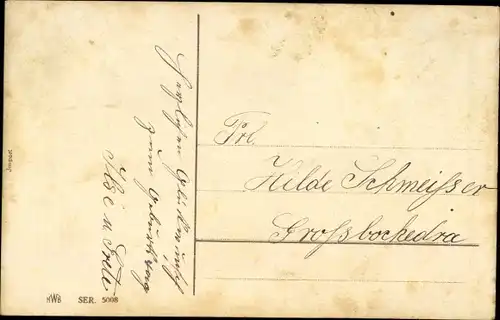 Herzlichen Glückwunsch
zum Geburtstag
Ilse u. Grete
Frl.
Hilde Schmeisser
Grossbockedra
Import
NWB SER. 5008